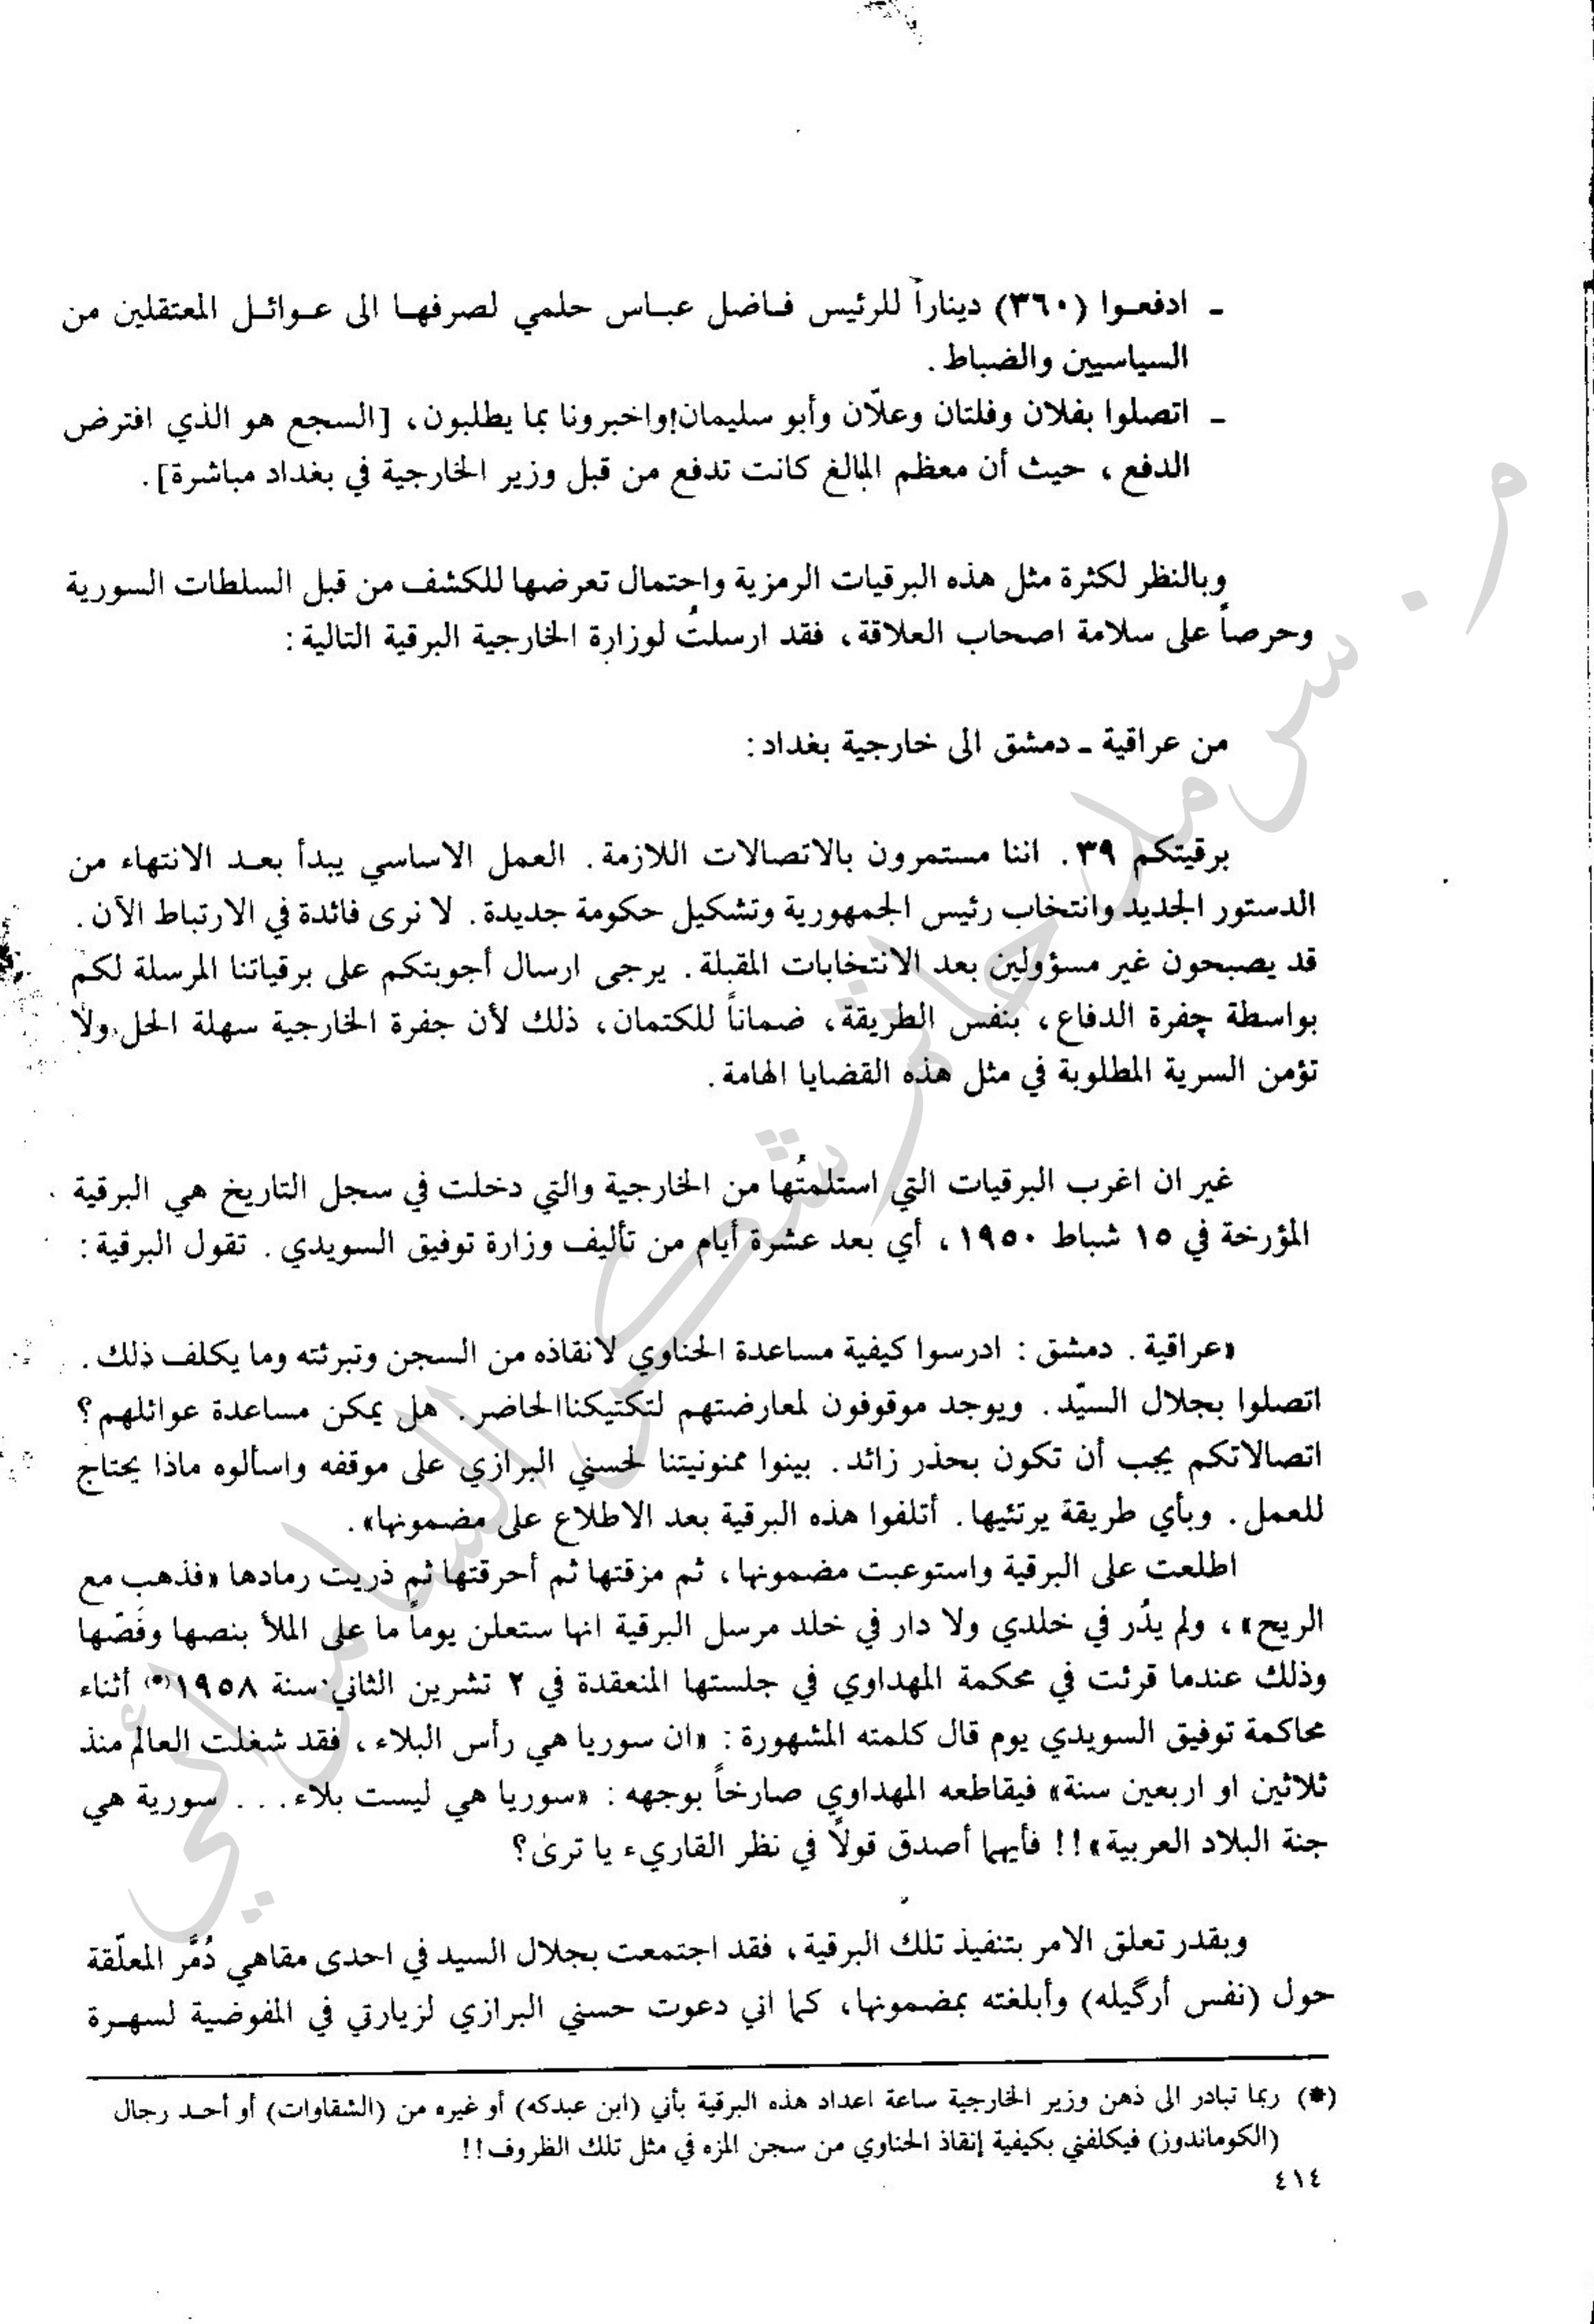 ـ ادفعـوا (٣٦٠) ديناراً للرئيس فـاضل عبـاس حلمي لصرفهـا الى عـوائـل المعتقلين من
السياسيين والضباط .
ـ اتصلوا بفلان وفلتان وعلّان وأبو سليمان واخبرونا بما يطلبون، [السجع هو الذي افترض
الدفع ، حيث أن معظم المبالغ كانت تدفع من قبل وزير الخارجية في بغداد مباشرة].
وبالنظر لكثرة مثل هذه البرقيات الرمزية واحتمال تعرضها للكشف من قبل السلطات السورية
وحرصاً على سلامة اصحاب العلاقة، فقد ارسلتُ لوزارة الخارجية البرقية التالية :
من عراقية ـ دمشق الى خارجية بغداد :
برقيتكم ٣٩ . اننا مستمرون بالاتصالات اللازمة . العمل الاساسي يبدأ بعـد الانتهاء من
الدستور الجديد وانتخاب رئيس الجمهورية وتشكيل حكومة جديدة . لا نرى فائدة في الارتباط الآن .
قد يصبحون غير مسؤولين بعد الانتخابات المقبلة . يرجى ارسال أجوبتكم على برقياتنا المرسلة لكم
بواسطة چفرة الدفاع، بنفس الطريقة، ضماناً للكتمان، ذلك لأن جفرة الخارجية سهلة الحل ولا
تؤمن السرية المطلوبة في مثل هذه القضايا الهامة .
غير ان اغرب البرقيات التي استلمتُها من الخارجية والتي دخلت في سجل التاريخ هي البرقية
المؤرخة في ١٥ شباط ١٩٥٠ ، أي بعد عشرة أيام من تأليف وزارة توفيق السويدي . تقول البرقية :
«عراقية . دمشق : ادرسوا كيفية مساعدة الحناوي لانقاذه من السجن وتبرئته وما يكلف ذلك .
اتصلوا بجلال السيّد . ويوجد موقوفون لمعارضتهم لتكتيكنا الحاضر . هل يمكن مساعدة عوائلهم ؟
اتصالاتكم يجب أن تكون بحذر زائد . بينوا ممنونيتنا لحسني البرازي على موقفه واسألوه ماذا يحتاج
للعمل . وبأي طريقة يرتئيها . أتلفوا هذه البرقية بعد الاطلاع على مضمونها» .
اطلعت على البرقية واستوعبت مضمونها، ثم مزقتها ثم أحرقتها ثم ذريت رمادها «فذهب مع
الريح» ، ولم يدُر في خلدي ولا دار في خلد مرسل البرقية انها ستعلن يوماً ما على الملأ بنصها وفَصّها
وذلك عندما قرئت في محكمة المهداوي في جلستها المنعقدة في ٢ تشرين الثاني سنة ١٩٥٨(*) أثناء
محاكمة توفيق السويدي يوم قال كلمته المشهورة : «ان سوريا هي رأس البلاء ، فقد شغلت العالم منذ
ثلاثين او اربعين سنة» فيقاطعه المهداوي صارخاً بوجهه : «سوريا هي ليست بلاء . . . سورية هي
جنة البلاد العربية»!! فأيهما أصدق قولاً في نظر القاريء يا ترى ؟
وبقدر تعلق الامر بتنفيذ تلك البرقية، فقد اجتمعت بجلال السيد في احدى مقاهي دُمَّر المعلّقة
حول (نفس أرگيله) وأبلغته بمضمونها، كما اني دعوت حسني البرازي لزيارتي في المفوضية لسهـرة
(*) ربما تبادر الى ذهن وزير الخارجية ساعة اعداد هذه البرقية بأني (ابن عبدكه) أو غيره من (الشقاوات) أو أحـد رجال
(الكوماندوز) فيكلفني بكيفية إنقاذ الحناوي من سجن المزه في مثل تلك الظروف !!
٤١٤